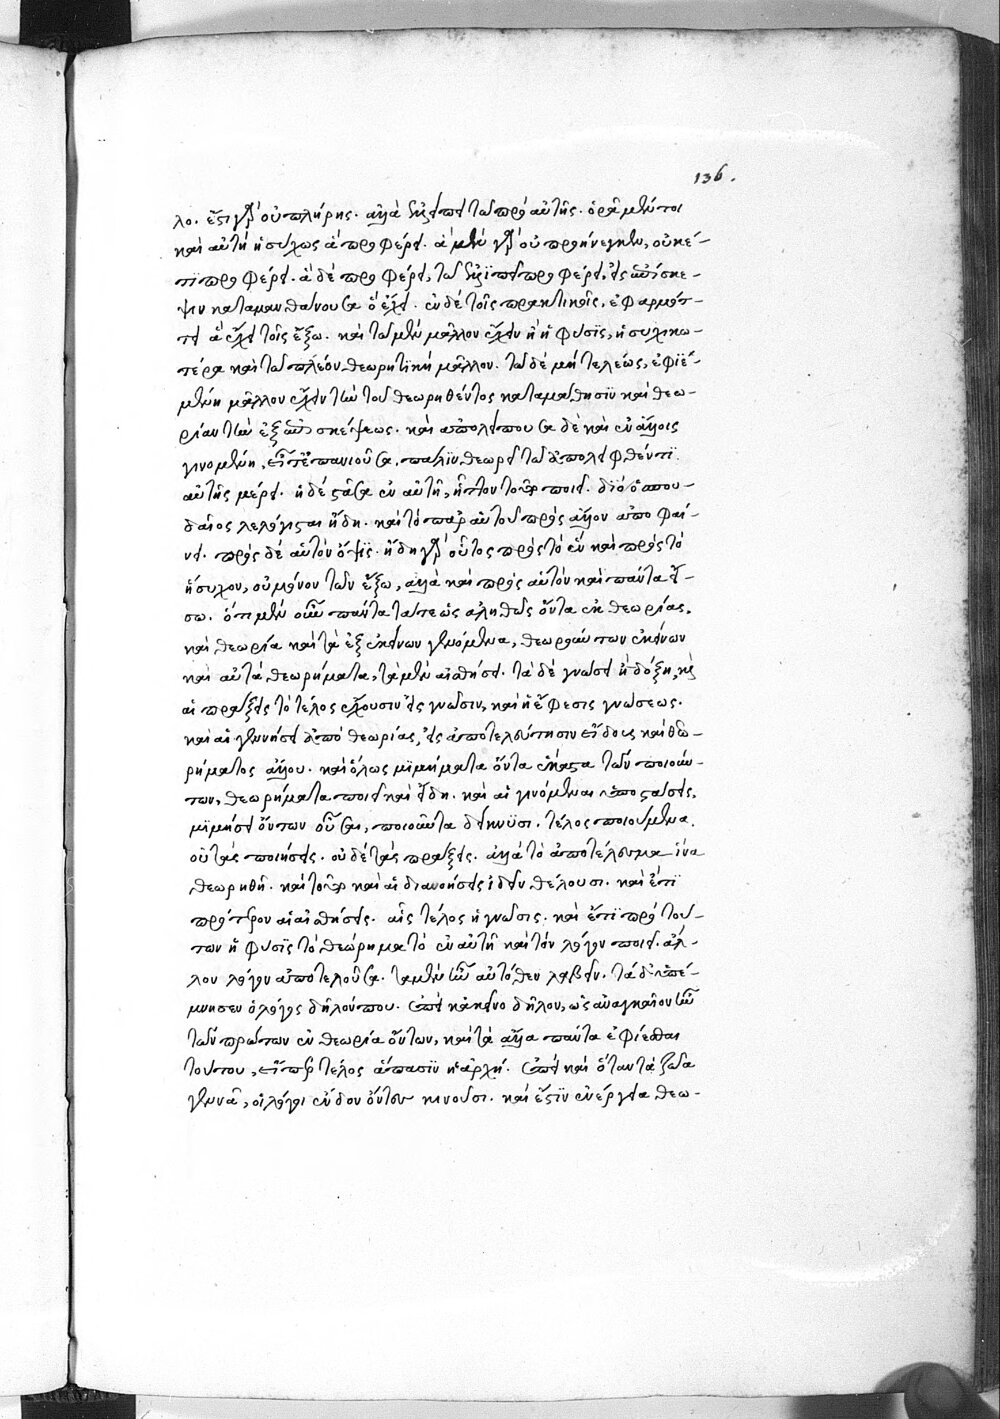 136.
λο. ἔστι γὰρ οὐ πλήρης. ἀλλὰ ἐλλείπει τῷ πρὸ αὐτῆς. ὁρᾷ μέντοι
καὶ αὐτὴ ἡσύχως ἃ προφέρει. ἃ μὲν γὰρ οὐ προήνεγκεν, οὐκέ-
τι προφέρει. ἃ δὲ προφέρει, τῷ ἐλλιπεῖ προφέρει, εἰς ἐπίσκε-
ψιν καταμανθάνουσα ὃ ἔχει. ἐν δὲ τοῖς πρακτικοῖς, ἐφαρμότ-
τει ἃ ἔχει τοῖς ἔξω. καὶ τῷ μὲν μᾶλλον ἔχειν ἢ ἡ φύσις, ἡσυχικω-
τέρα καὶ τῷ πλέον θεωρητικὴ μᾶλλον. τῷ δὲ μὴ τελέως, ἐφιε-
μένη μᾶλλον ἔχειν τὴν τοῦ θεωρηθέντος καταμάθησιν καὶ θεω-
ρίαν τὴν ἐξ ἐπισκέψεως. καὶ ἀπολείπουσα δὲ καὶ ἐν ἄλλοις
γινομένη, εἶτ' ἐπανιοῦσα, πάλιν θεωρεῖ τῷ ἀπολειφθέντι
αὐτῆς μέρει. ἡ δὲ στᾶσα ἐν αὐτῇ, ἧττον τοῦτο ποιεῖ. διὸ ὁ σπου-
δαῖος λελόγισται ἤδη. καὶ τὸ παρ' αὐτοῦ πρὸς ἄλλον ἀποφαί-
νει. πρὸς δὲ αὐτὸν ὄψις. ἤδη γὰρ οὗτος πρὸς τὸ ἓν καὶ πρὸς τὸ
ἥσυχον, οὐ μόνον τῶν ἔξω, ἀλλὰ καὶ πρὸς αὐτὸν καὶ πάντα εἴ-
σω. ὅτι μὲν οὖν πάντα τά τε ὡς ἀληθῶς ὄντα ἐκ θεωρίας,
καὶ θεωρία καὶ τὰ ἐξ ἐκείνων γενόμενα, θεωρούντων ἐκείνων
καὶ αὐτὰ θεωρήματα, τὰ μὲν αἰσθήσει. τὰ δὲ γνώσει ἢ δόξῃ, καὶ
αἱ πράξεις τὸ τέλος ἔχουσιν εἰς γνῶσιν, καὶ ἡ ἔφεσις γνώσεως.
καὶ αἱ γεννήσεις ἀπὸ θεωρίας, εἰς ἀποτελεύτησιν εἴδους καὶ θεω-
ρήματος ἄλλου. καὶ ὅλως μιμήματα ὄντα ἕκαστα τῶν ποιούν-
των, θεωρήματα ποιεῖ καὶ εἴδη. καὶ αἱ γινόμεναι ὑποστάσεις,
μιμήσεις ὄντων οὖσαι, ποιοῦντα δείκνυσι. τέλος ποιούμενα.
οὐ τὰς ποιήσεις. οὐδὲ τὰς πράξεις. ἀλλὰ τὸ ἀποτέλεσμα ἵνα
θεωρηθῇ. καὶ τοῦτο καὶ αἱ διανοήσεις ἰδεῖν θέλουσι. καὶ ἔτι
πρότερον αἱ αἰσθήσεις. αἷς τέλος ἡ γνῶσις. καὶ ἔτι πρὸ τού-
των ἡ φύσις τὸ θεώρημα τὸ ἐν αὐτῇ καὶ τὸν λόγον ποιεῖ. ἄλ-
λον λόγον ἀποτελοῦσα. τὰ μὲν ἦν αὐτόθεν λαβεῖν. τὰ δ' ὑπέ-
μνησεν ὁ λόγος δῆλόν που. ἐπεὶ κἀκεῖνο δῆλον, ὡς ἀναγκαῖον ἦν
τῶν πρώτων ἐν θεωρίᾳ ὄντων, καὶ τὰ ἄλλα πάντα ἐφίεσθαι
τούτου, εἴπερ τέλος ἅπασιν ἡ ἀρχή. ἐπεὶ καὶ ὅταν τὰ ζῷα
γεννᾷ, οἱ λόγοι ἔνδον ὄντες κινοῦσι. καὶ ἔστιν ἐνέργεια θεω-